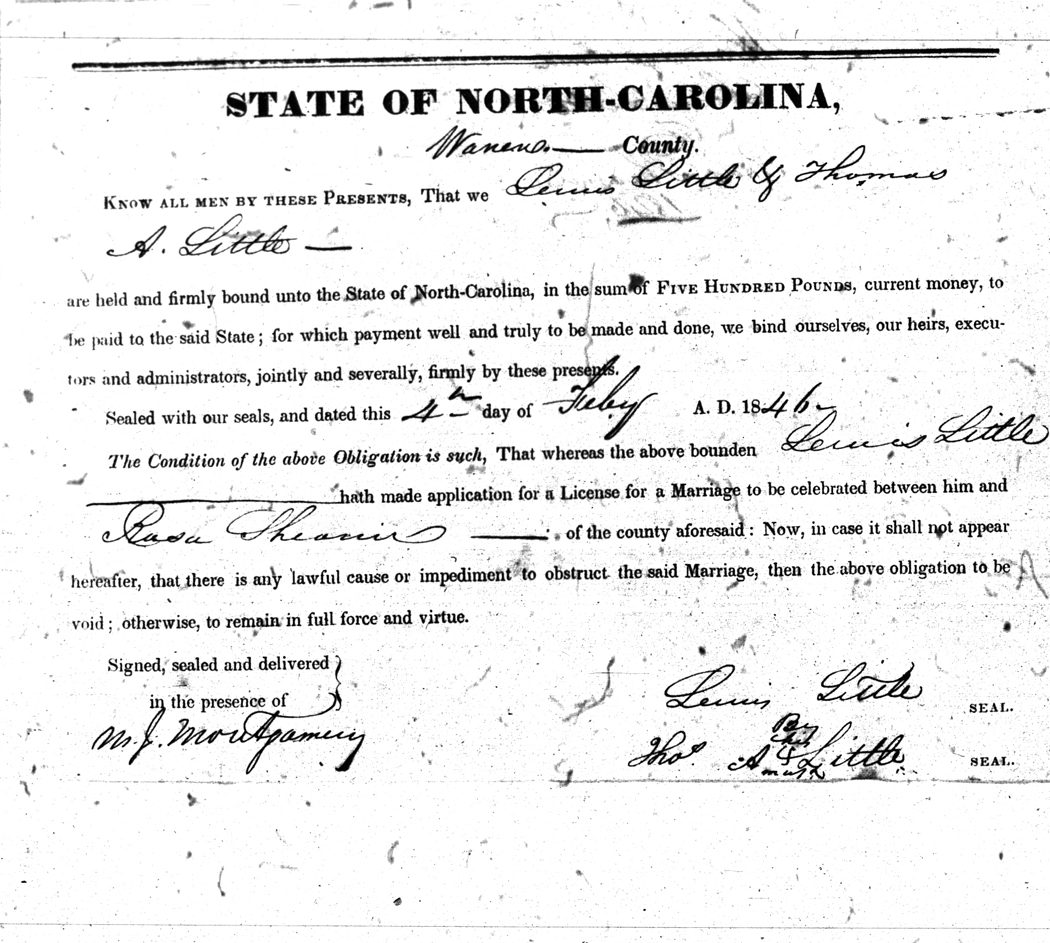 STATE OF NORTH-CAROLINA,
Warren County.
KNOW ALL MEN BY THESE PRESENTS, That we Lewis Little & Thomas
A. Little
are held and firmly bound unto the State of North-Carolina, in the sum of FIVE HUNDRED POUNDS, current money, to
be paid to the said State; for which payment well and truly to be made and done, we bind ourselves, our heirs, execu-
tors and administrators, jointly and severally, firmly by these presents.
Sealed with our seals, and dated this 4th day of Feby A. D. 1846
The Condition of the above Obligation is such, That whereas the above bounden Lewis Little
hath made application for a License for a Marriage to be celebrated between him and
Rosa : of the county aforesaid: Now, in case it shall not appear
hereafter, that there is any lawful cause or impediment to obstruct the said Marriage, then the above obligation to be
void; otherwise, to remain in full force and virtue.
Signed, sealed and delivered
in the presence of
M. J. Montgomery
Lewis Little SEAL.
Thos. A Little SEAL.
mark